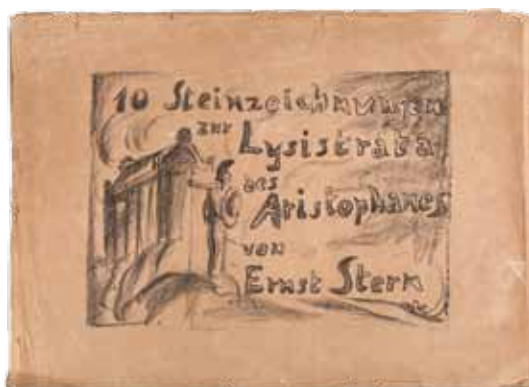 10 Steinzeichnungen
zur
Lysistrata
des
Aristophanes
von
Ernst Stern